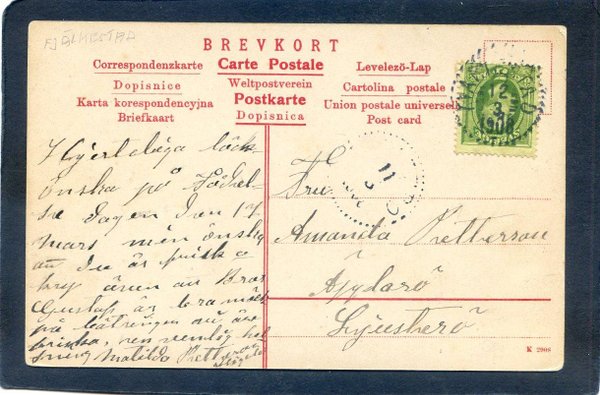 FJÄLKESTAD
BREVKORT
Correspondenzkarte Carte Postale Levelező-Lap
Dopisnice Weltpostverein Cartolina postale
Karta korespondencyjna Postkarte Union postale universelle
Briefkaart Dopisnica Post card
12
3
1906
11
Hjertliga lück-
önska på Födel-
se dagen den 17
mars min önskan
an du är frisk o
kry även
Gustaf är bra
på bättringen nu är
friska, en vänlig hel-
sning Matilda
Fru.
Amanda Petterson
Ljusterö
K 2908